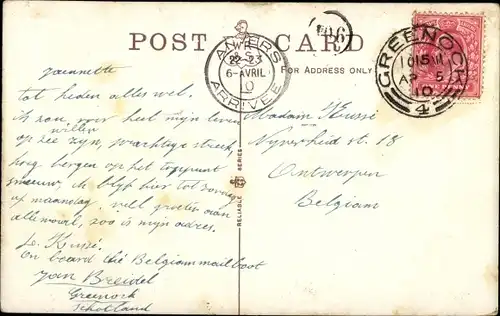 POST CARD
FOR ADDRESS ONLY.
ANVERS
22-23
6-AVRIL
10
ARRIVÉE
GREENOCK
1015
AP 5
10
4
RELIABLE SERIES
Jeannette
tot heden alles wel.
Ik zou voor heel mijn leven
willen
op zee zijn, prachtige streek,
hoog bergen op het toppunt
sneeuw, ik blijf hier tot zondag
of maandag. veel groeten aan
allemaal, zoo is mijn adres.
on board the Belgian mail boat
Jan Breidel
Greenock
Schotland
Madam
Nyverheid st. 18
Antwerpen
Belgium